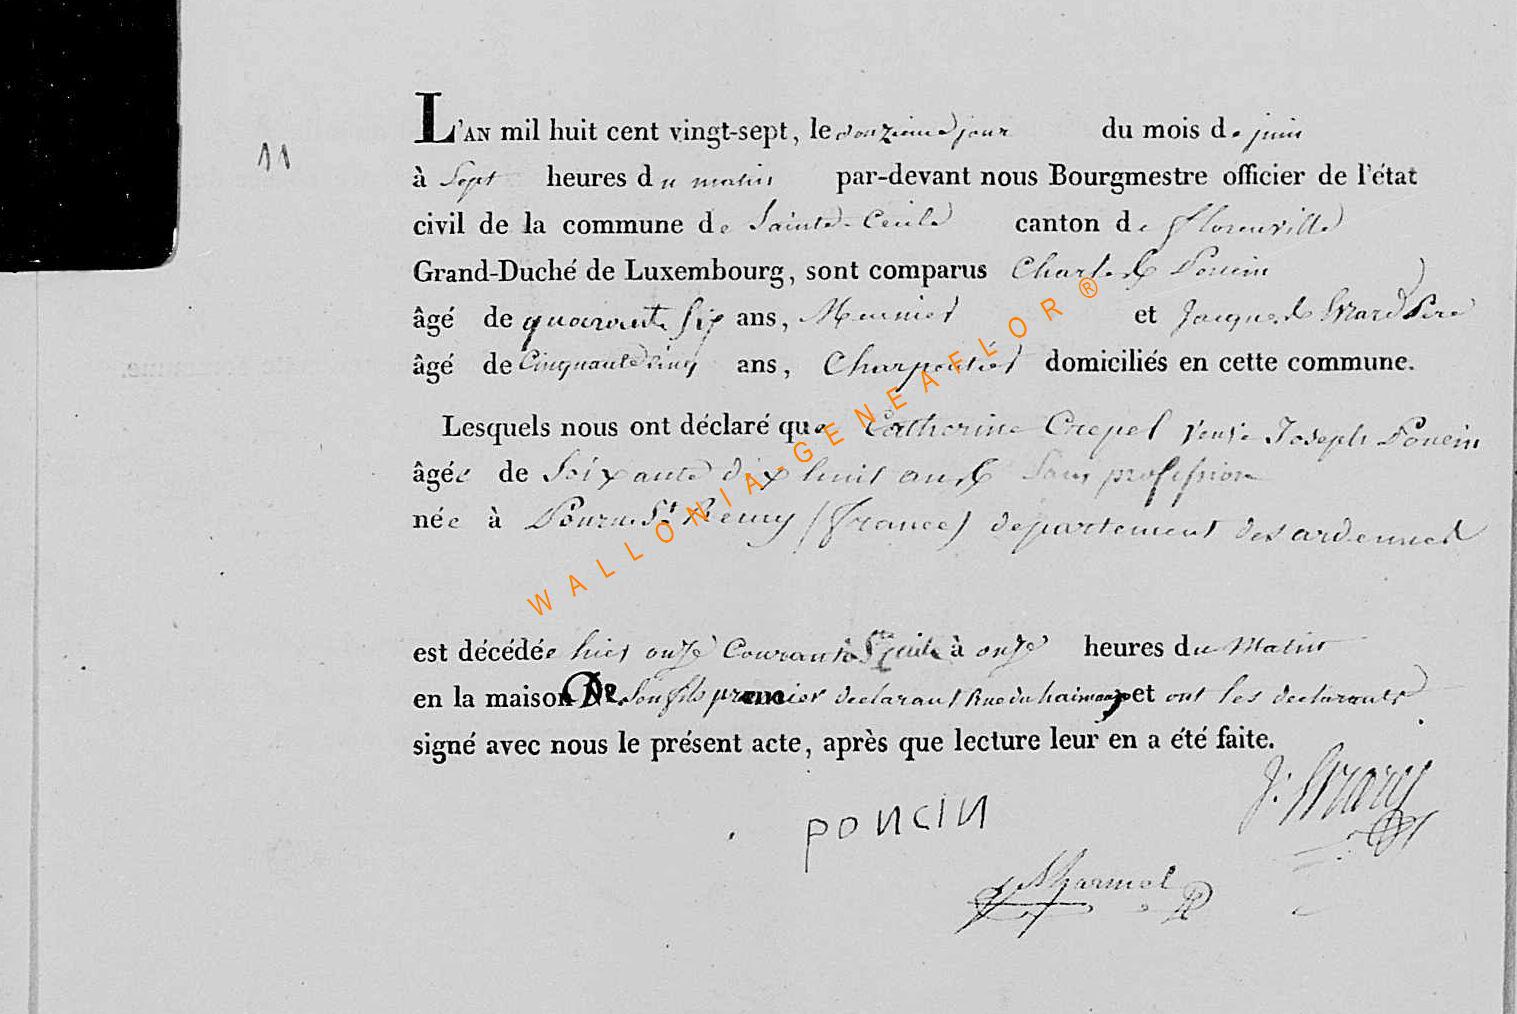 11
L'AN mil huit cent vingt-sept, le douzieme jour du mois de juin
à Sept heures du matin par-devant nous Bourgmestre officier de l'état
civil de la commune de Sainte-Cecile canton de florenville
Grand-Duché de Luxembourg, sont comparus Charles Poncin
âgé de quarante six ans, Meunier et Jacques Père
âgé de Cinquante cinq ans, Charpentier domiciliés en cette commune.
Lesquels nous ont déclaré que Catherine Crepel veuve Joseph Poncin
âgée de Soixante dix huit ans Sans profession
née à Pouru St Remy (france) departement des ardennes
est décédée hier onze Courant à Ste Cecile à onze heures du Matin
en la maison De Son fils premier declarant Rue du et ont les declarants
signé avec nous le présent acte, après que lecture leur en a été faite.
poncin
WALLONIA-GENEAFLOR®